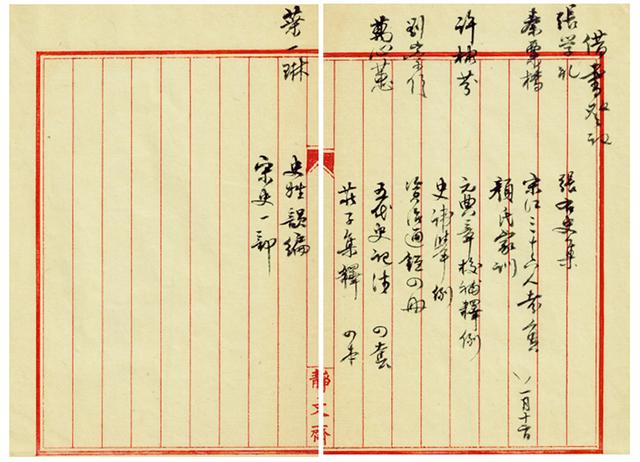 借書登記
張学礼 張右史集
秦 橋 宋江三十六人考實
顏氏家訓
許 芬 元典章校補釋例
史諱舉例
劉 資治通鑑四冊
萬心蕙 五代史記注 四套
莊子集釋 四本
葉一琳 史姓韻編
宋史一部
靜文齋